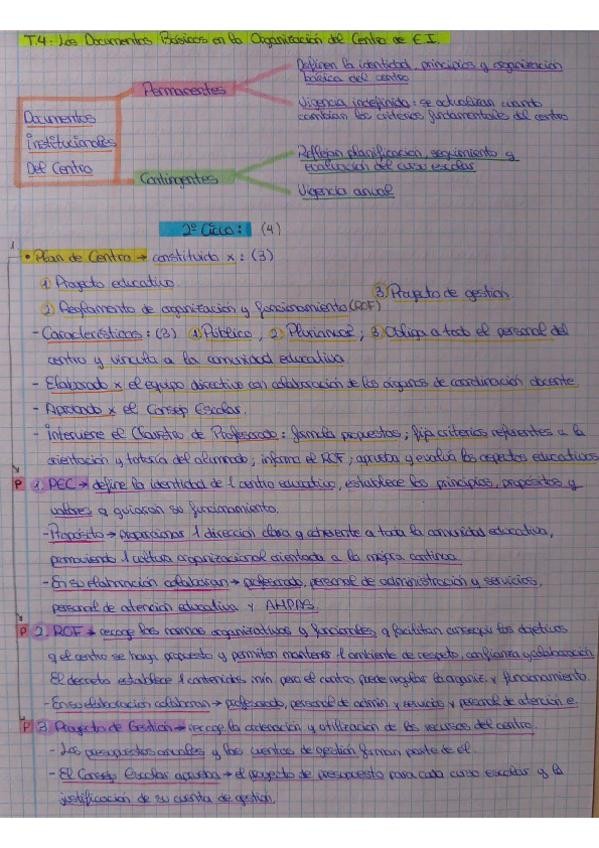 T.4: Los Documentos Básicos en la Organización del Centro de E.I.
Documentos
institucionales
Del Centro
Permanentes
Definen la identidad, principios y organización
básica del centro
Vigencia indefinida: se actualizan cuando
cambian los criterios fundamentales del centro
Contingentes
Reflejan planificación, seguimiento y
evaluación del curso escolar
Vigencia anual
2º Ciclo: (4)
• Plan de Centro → constituido x: (3)
1 Proyecto educativo
3. Proyecto de gestión
2) Reglamento de organización y funcionamiento (ROF)
- Características: (3) 1 Público, 2) Plurianual; 3 Obliga a todo el personal del
centro y vincula a la comunidad educativa
- Elaborado x el equipo directivo con colaboración de los órganos de coordinación docente.
- Aprobado x el Consejo Escolar.
- Interviene el Claustro de Profesorado: formula propuestas; fija criterios referentes a la
orientación y tutoría del alumnado; informa el ROF; aprueba y evalúa los aspectos educativos
P 1. PEC → define la identidad de l centro educativo, establece los principios, propósitos y
valores q guiarán su funcionamiento.
- Propósito → proporcionar 1 dirección clara y coherente a toda la comunidad educativa,
promoviendo 1 cultura organizacional orientada a la mejora continua.
- En su elaboración colaboran → profesorado, personal de administración y servicios,
personal de atención educativa y AMPAS.
P 2. ROF → recoge las normas organizativas y funcionales q facilitan conseguir los objetivos
q el centro se haya propuesto y permiten mantener 1 ambiente de respeto, confianza y colaboración.
El decreto establece 1 contenidos mín pero el centro puede regular la organiz. y funcionamiento.
- En su elaboración colaboran → profesorado, personal de admin y servicios y personal de atención e.
P 3. Proyecto de Gestión → recoge la ordenación y utilización de los recursos del centro.
- Los presupuestos anuales y las cuentas de gestión forman parte de él.
- El Consejo Escolar aprueba → el proyecto de presupuesto para cada curso escolar y la
justificación de su cuenta de gestión.